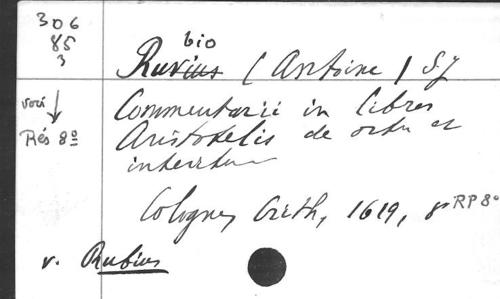 306
85
3
bio
Ruvius (Antoine) SJ
voir
↓
Rés 8º
Commentarii in libros
Aristotelis de ortu et
interitu
Cologne, 1619, 8 RP 8º
v. Rubius